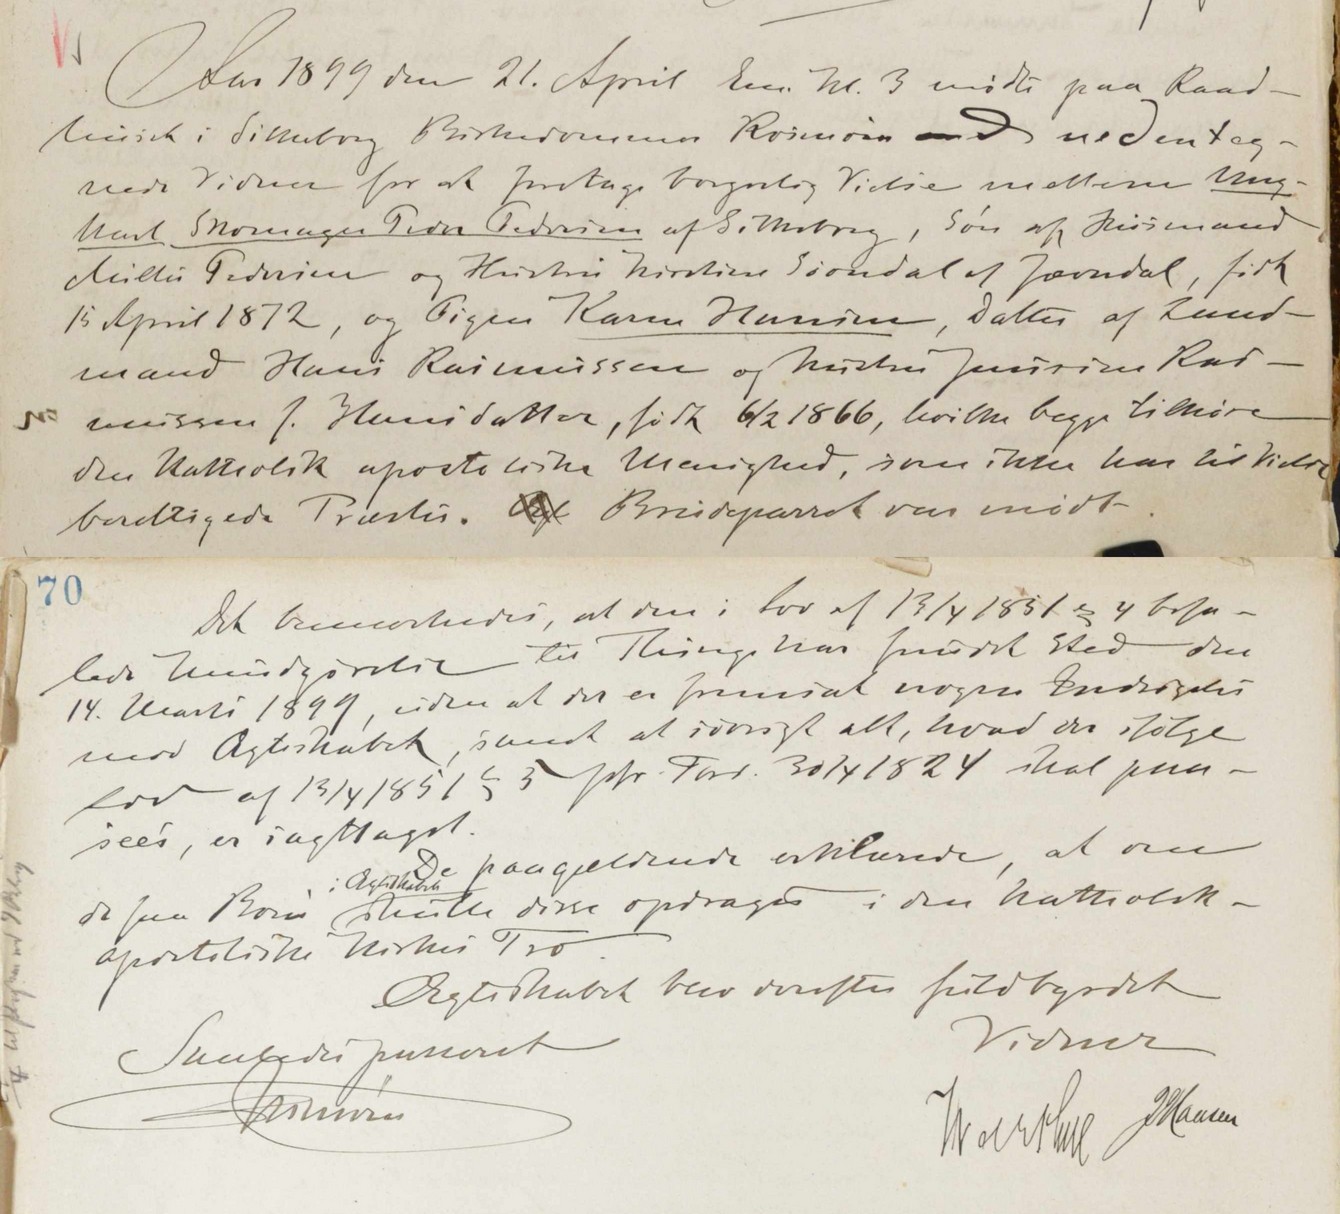 Aar 1899 den 21. April Em. Kl. 3 mødte paa Raad-
huset i Silkeborg Birkedommer Rosenørn med nedenteg-
nede Vidner for at foretage borgerlig Vielse mellem Ung-
karl Skomager Peder Pedersen af Silkeborg, Søn af Husmand
Pedersen og Hustru Kirstine Siondal af Jævndal, født
15 April 1872, og Pigen Karen Hansen, Datter af Land-
mand Hans Rasmussen og Hustru Jensine Ras-
mussen f. Hansdatter, født 6/2 1866, hvilke begge tilhøre
den katholsk apostoliske Menighed, som ikke har til Vielse
berettigede Præster. Brudeparret var mødt.
70
Det bemærkedes, at den i Lov af 13/4 1851 § 4 befa-
lede Kundgjørelse til Thinge har fundet Sted den
14. Marts 1899, uden at der er fremsat nogen Indsigelse
mod Ægteskabet, samt at iøvrigt alt, hvad der ifølge
Lov af 13/4 1851 § 5 jfr. Ford. 30/4 1824 skal paa-
sees, er iagttaget.
De paagjeldende erklærede, at om
de faa Børn i Ægteskabet skulle disse opdrages i den katholsk-
apostoliske Kirkes Tro.
Ægteskabet blev derefter fuldbyrdet
Saaledes passeret
Vidner
Rosenørn
J Hansen